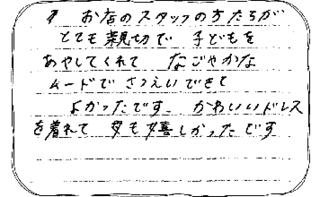 お店のスタッフの方たちが
とても親切で 子どもを
あやしてくれて なごやかな
ムードで さつえいできて
よかったです。 かわいいドレス
を着れて 娘も嬉しかったです